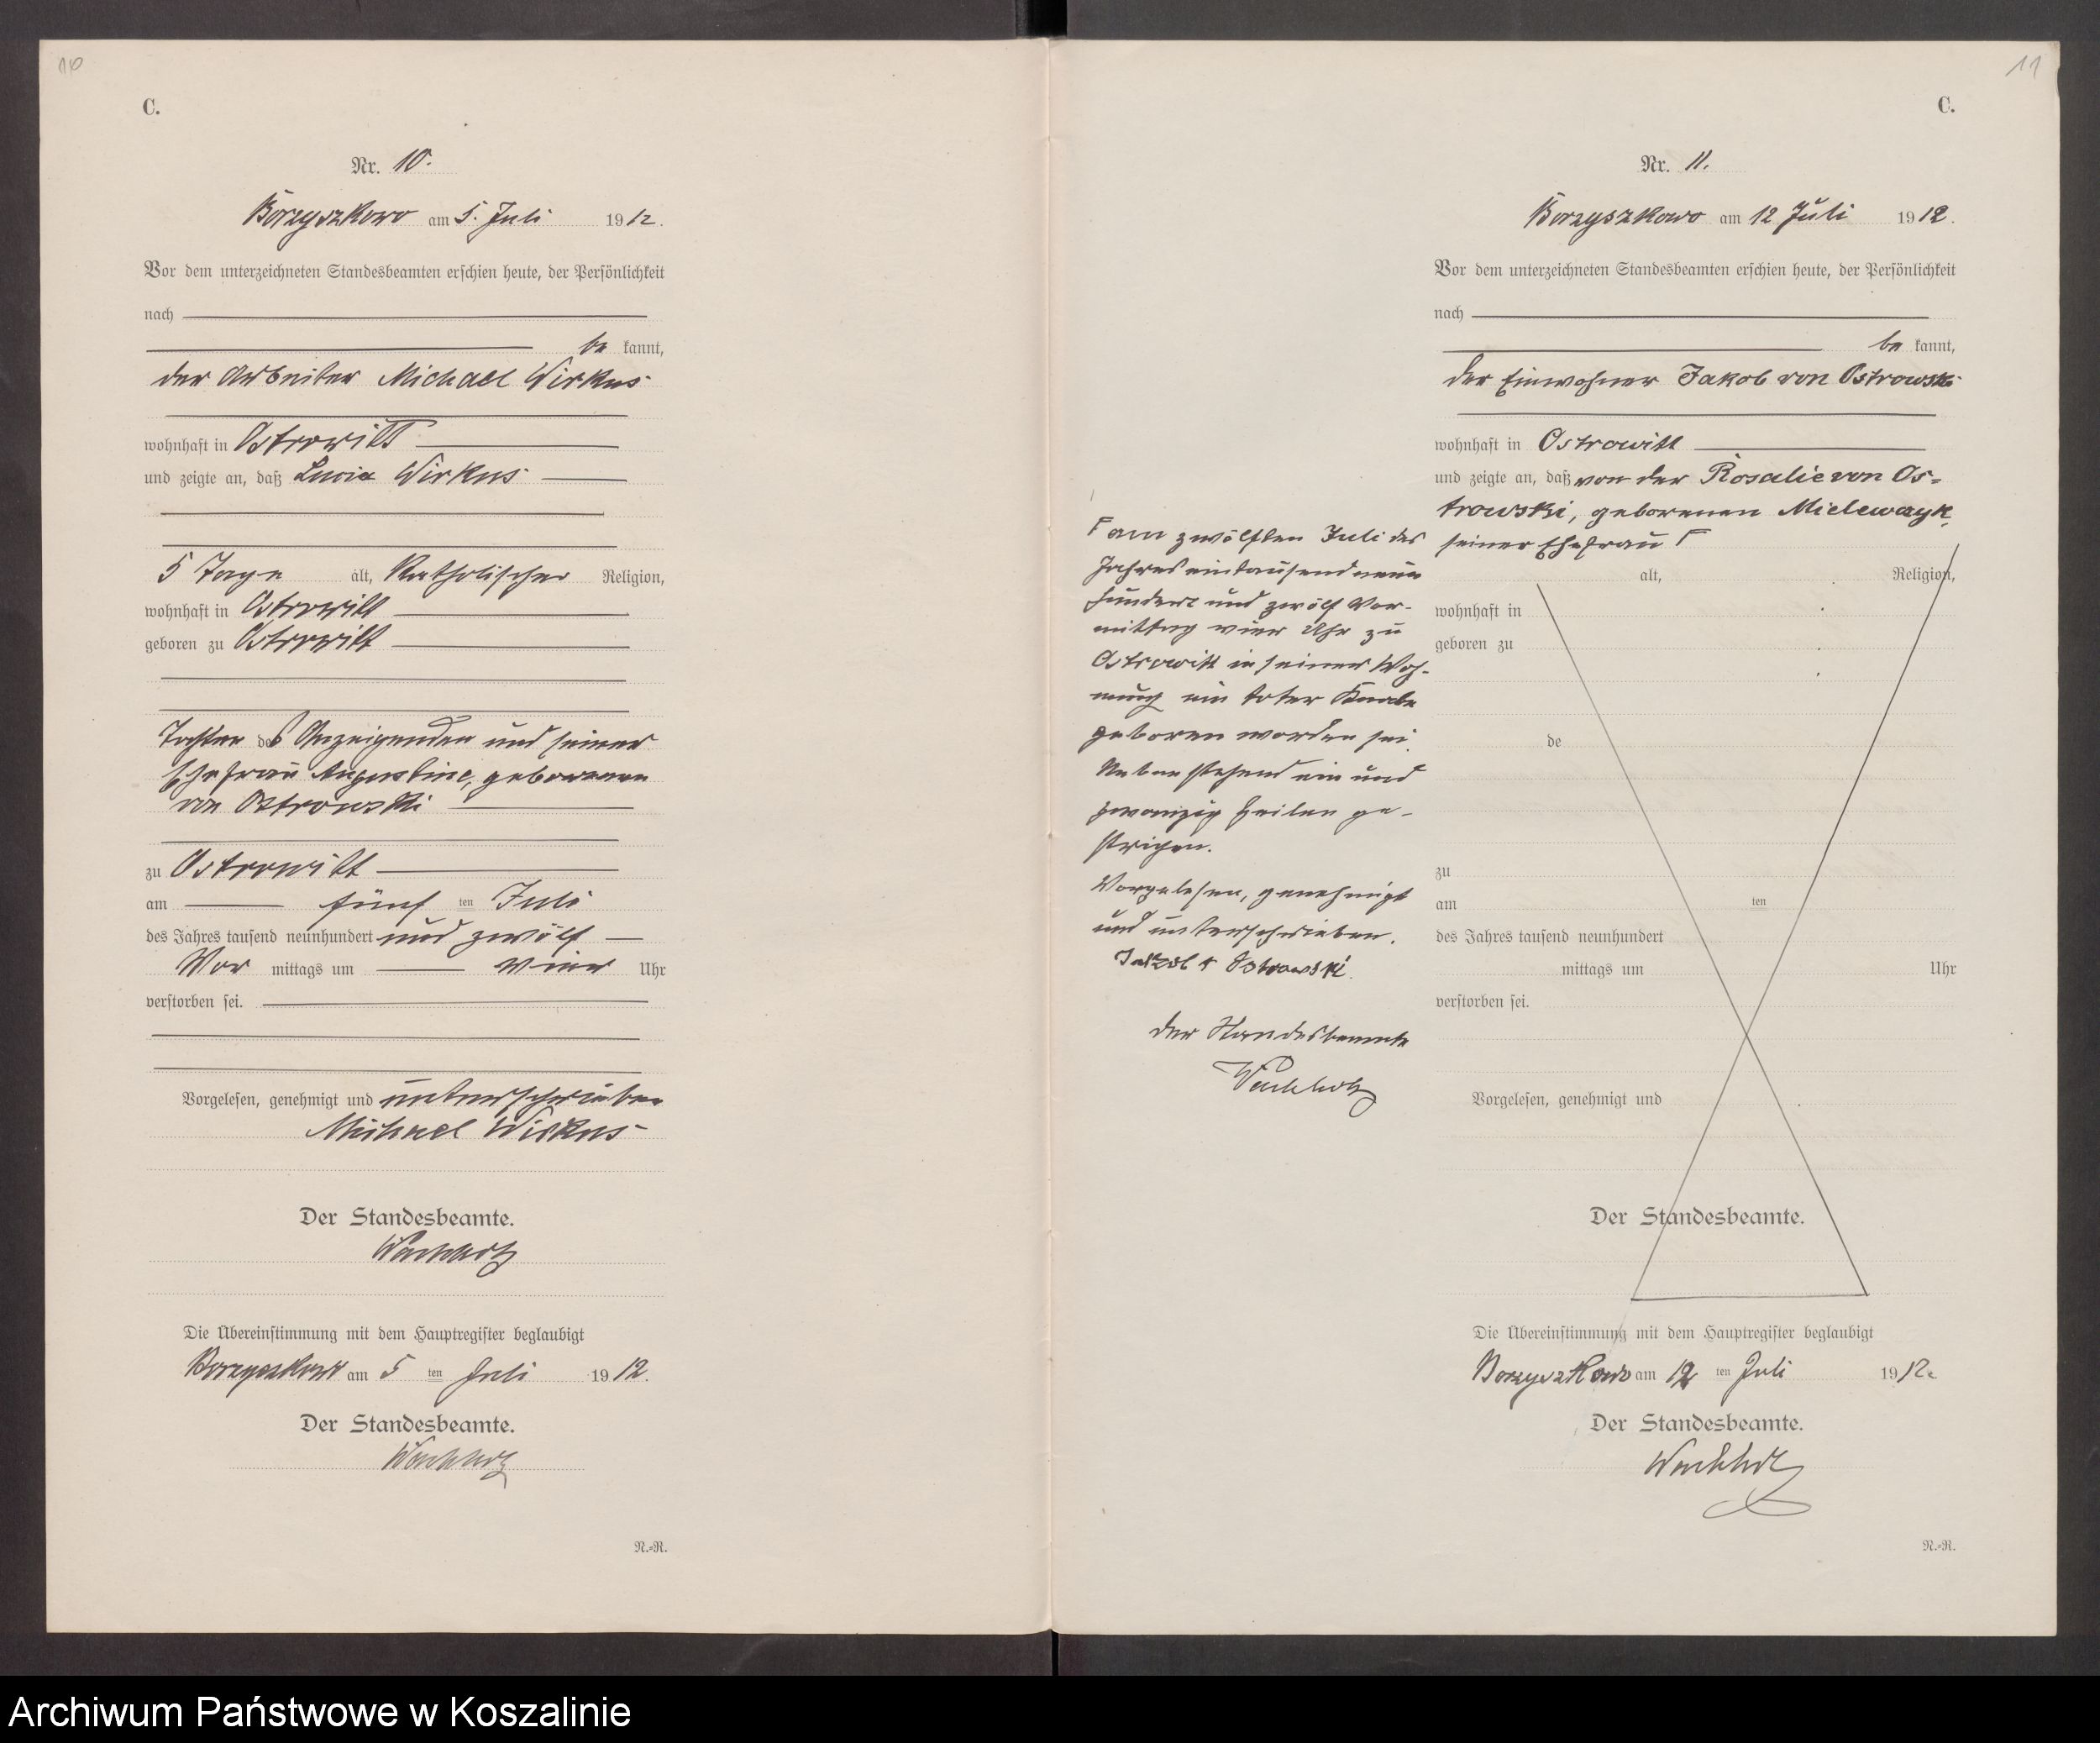 10
C.
Nr. 10.
Borzyszkowo am 5. Juli 1912.
Vor dem unterzeichneten Standesbeamten erschien heute, der Persönlichkeit
nach
be kannt,
der Arbeiter Michael Wirkus
wohnhaft in Ostrowitt
und zeigte an, daß Lucia Wirkus
5 Tage alt, Katholischer Religion,
wohnhaft in Ostrowitt
geboren zu Ostrowitt
Tochter des Anzeigenden und seiner
Ehefrau Augustine, geborenen
von Ostrowski
zu Ostrowitt
am fünf ten Juli
des Jahres tausend neunhundert und zwölf
Vor mittags um vier Uhr
verstorben sei.
Vorgelesen, genehmigt und unterschrieben
Michael Wirkus
Der Standesbeamte.
Wachholz
Die Übereinstimmung mit dem Hauptregister beglaubigt
Borzyszkowo am 5 ten Juli 1912.
Der Standesbeamte.
Wachholz
N.-R.
11
C.
Nr. 11.
Borzyszkowo am 12 Juli 1912.
Vor dem unterzeichneten Standesbeamten erschien heute, der Persönlichkeit
nach
be kannt,
der Einwohner Jakob von Ostrowski
wohnhaft in Ostrowitt
und zeigte an, daß von der Rosalie von Os=
trowski, geborenen Mielewczyk,
seiner Ehefrau Γ
Γ am zwölften Juli des
Jahres eintausendneun
hundert und zwölf Vor-
mittag vier Uhr zu
Ostrowitt in seiner Woh-
nung ein toter Knabe
geboren worden sei.
Nebenstehend ein und
zwanzig Zeilen ge-
strichen.
Vorgelesen, genehmigt
und unterschrieben.
Jakob v Ostrowski
Der Standesbeamte
Wachholz
alt, Religion,
wohnhaft in
geboren zu
de
zu
am ten
des Jahres tausend neunhundert
mittags um Uhr
verstorben sei.
Vorgelesen, genehmigt und
Der Standesbeamte.
Die Übereinstimmung mit dem Hauptregister beglaubigt
Borzyszkowo am 12 ten Juli 1912.
Der Standesbeamte.
Wachholz
N.-R.
Archiwum Państwowe w Koszalinie